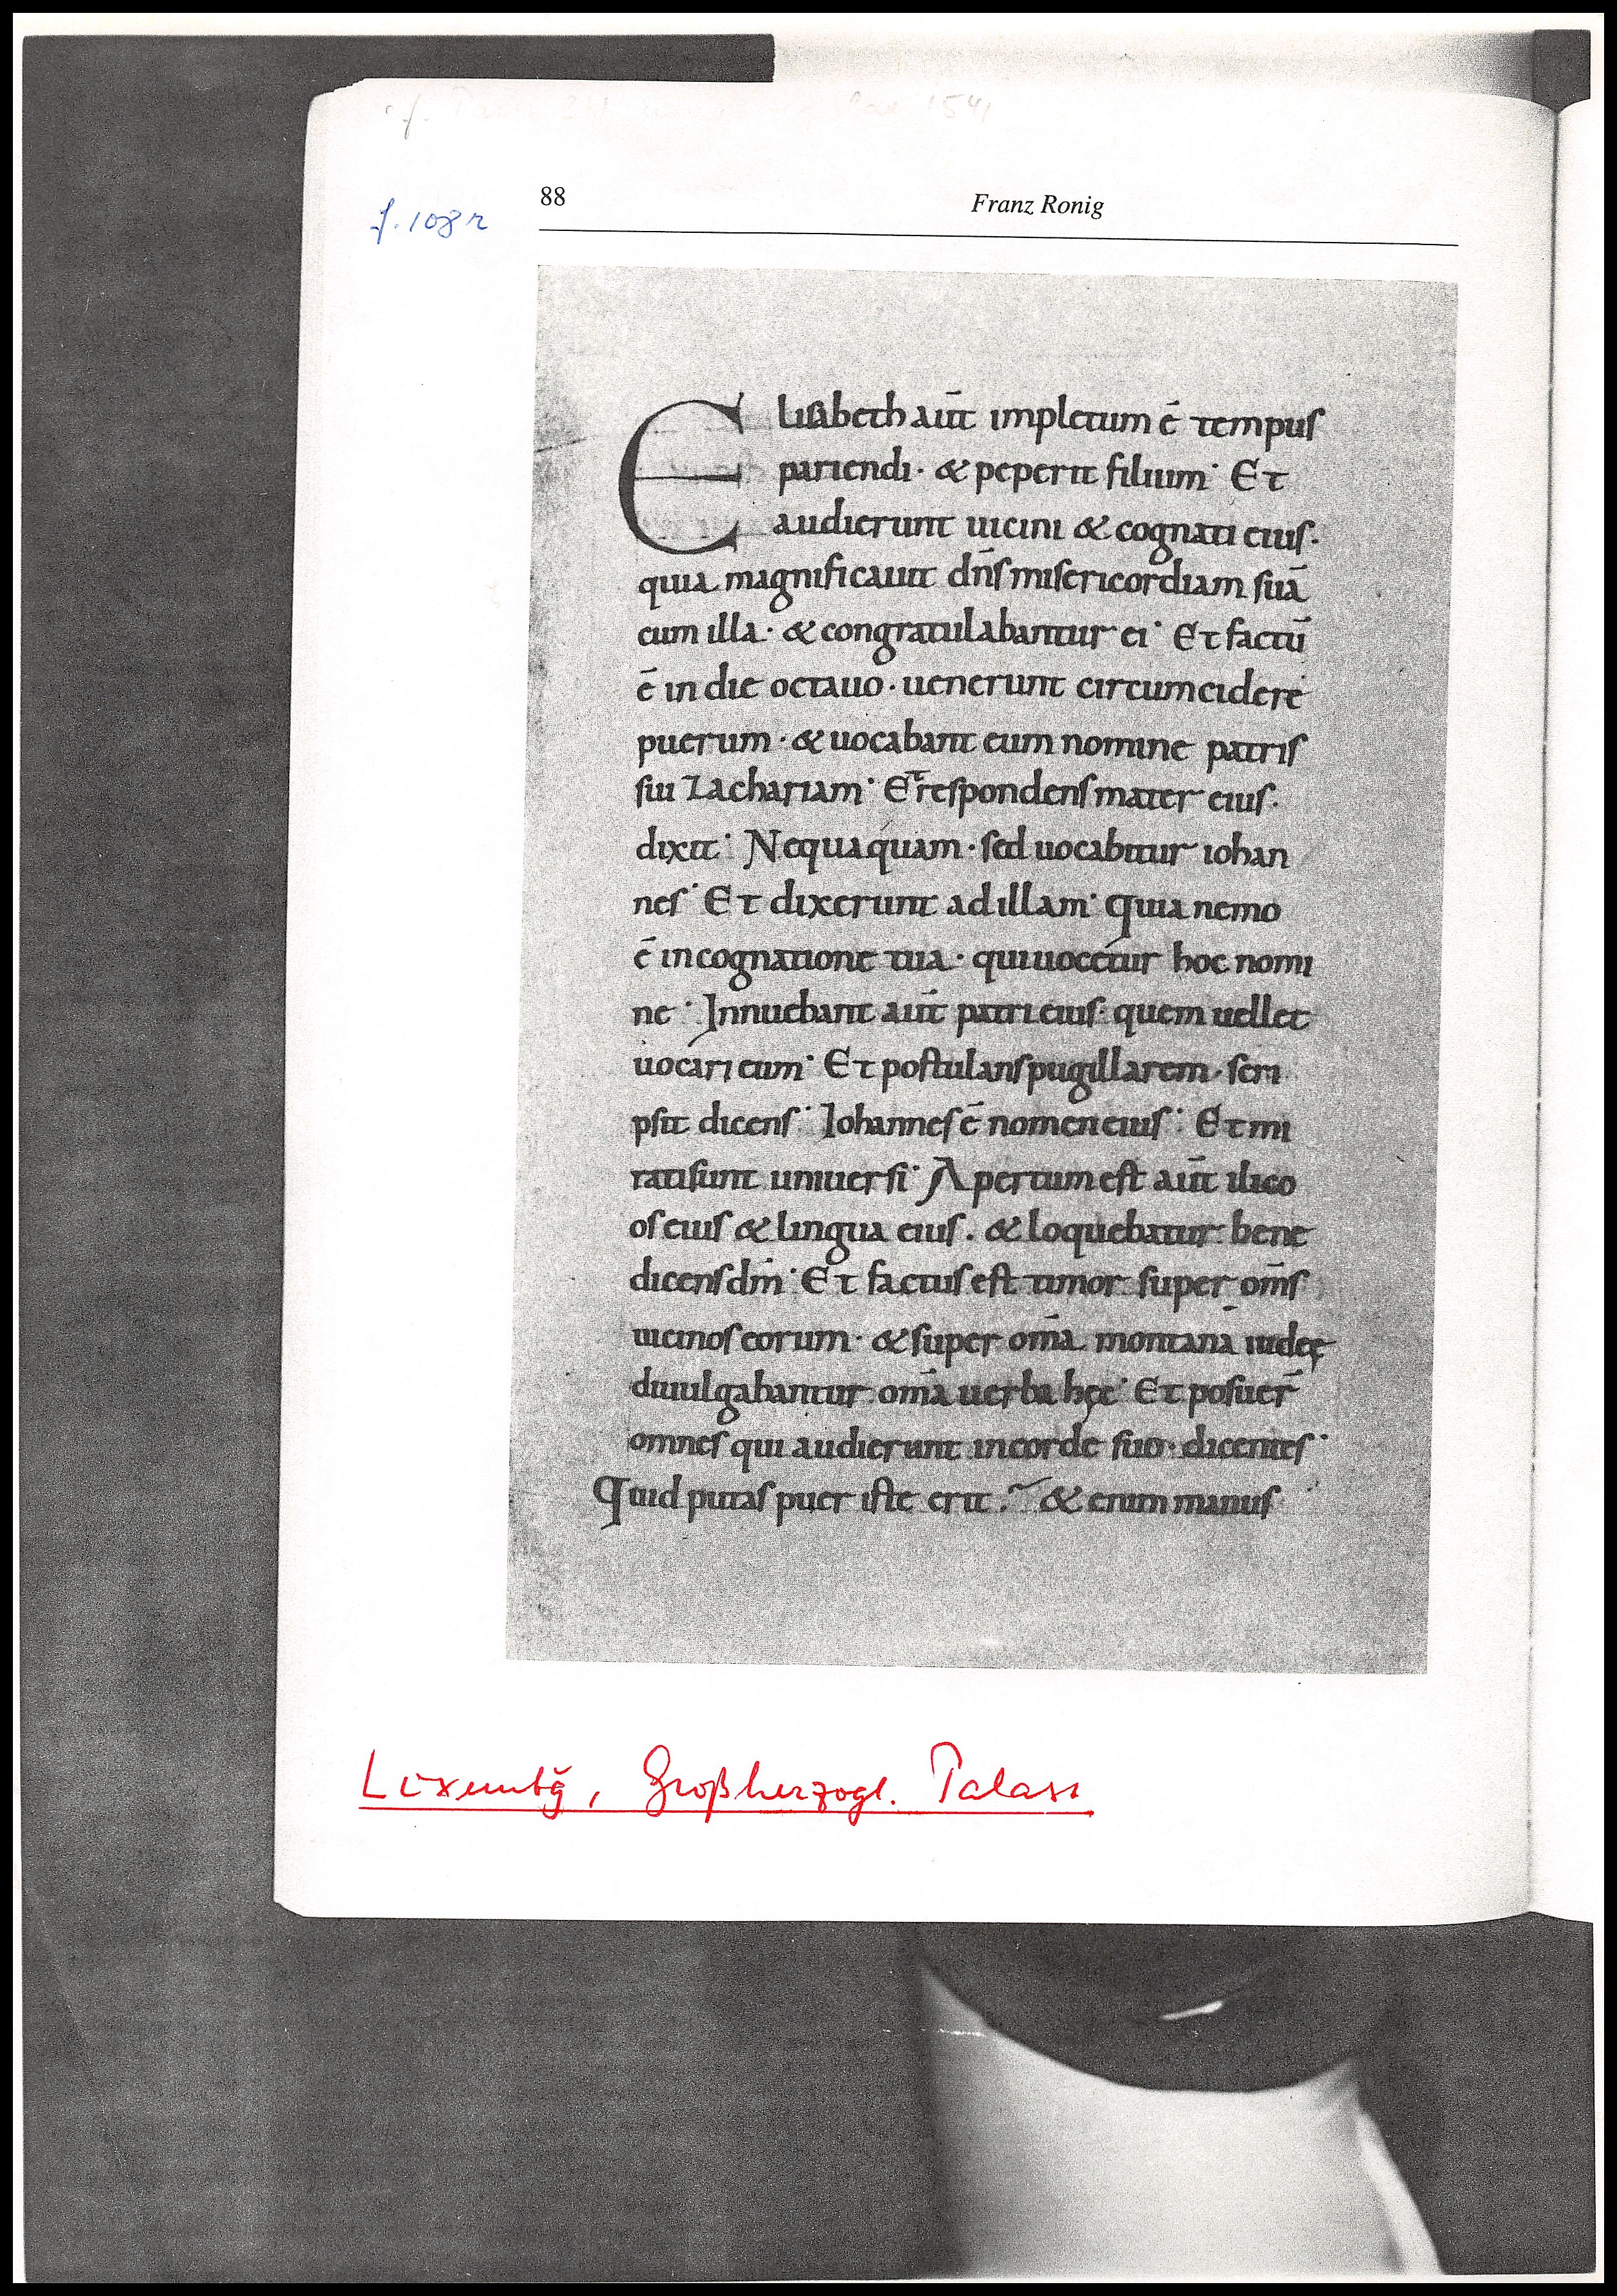 cf.
1541
f. 108r
88
Franz Ronig
Elisabeth aūt impletum ē tempus
pariendi · & peperit filium · Et
audierunt uicini & cognati eius ·
quia magnificauit dn̄s misericordiam suā
cum illa · & congratulabantur ei · Et factū
ē in die octauo · uenerunt circumcidere
puerum · & uocabant eum nomine patris
sui Zachariam · Et respondens mater eius ·
dixit · Nequaquam · sed uocabitur iohan
nes · Et dixerunt ad illam · Quia nemo
ē in cognatione tua · qui uocetur hoc nomi
ne · Innuebant aūt patri eius · quem uellet
uocari eum · Et postulans pugillarem · scri
psit dicens · Iohannes ē nomen eius · Et mi
rati sunt uniuersi · Apertum est aūt ilico
os eius & lingua eius · & loquebatur bene
dicens dm̄ · Et factus est timor super om̄s
uicinos eorum · & super om̄a montana iudeę
diuulgabantur om̄a uerba hęc · Et posuer̄
omnes qui audierunt in corde suo · dicentes ·
Quid putas puer iste erit ? & enim manus
Luxembg, Großherzogl. Palass